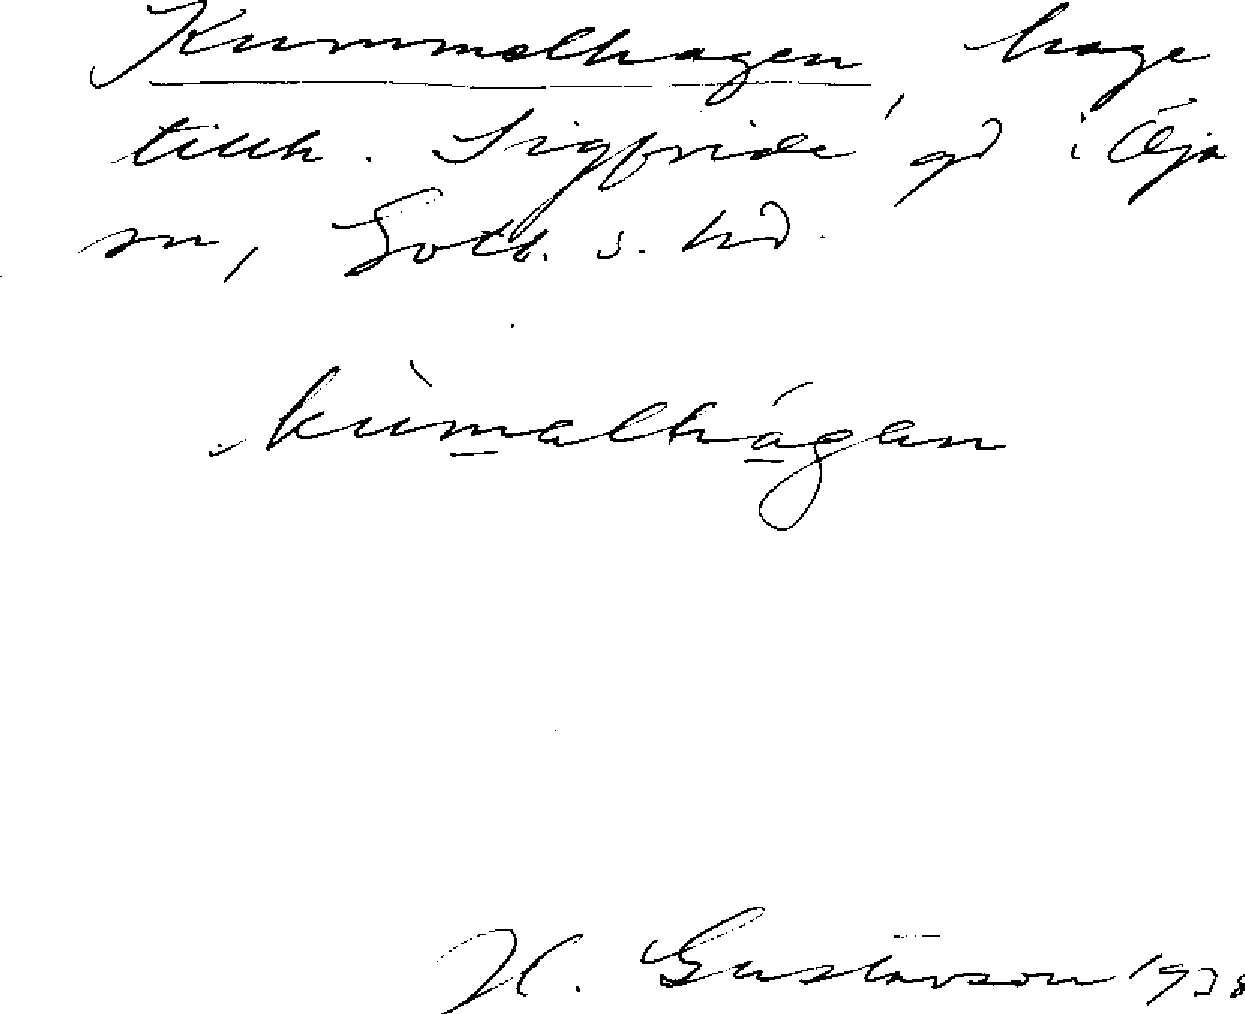 Kummelhagen, hage
tillh. Sigfride gd i Öja
sn, Gotl. s. hd.
kùmalhágan
H. Gustavson 1938